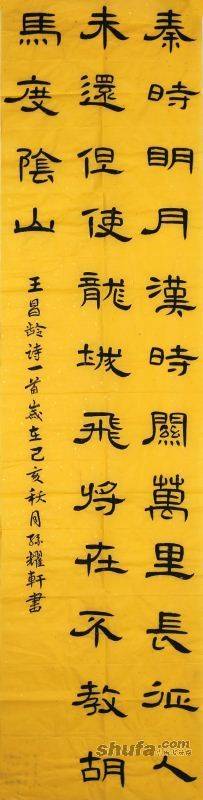 秦時明月漢時關萬里長征人
未還但使龍城飛將在不教胡
馬度陰山
王昌龄诗一首歲在己亥秋月孫耀軒書
shufa.com